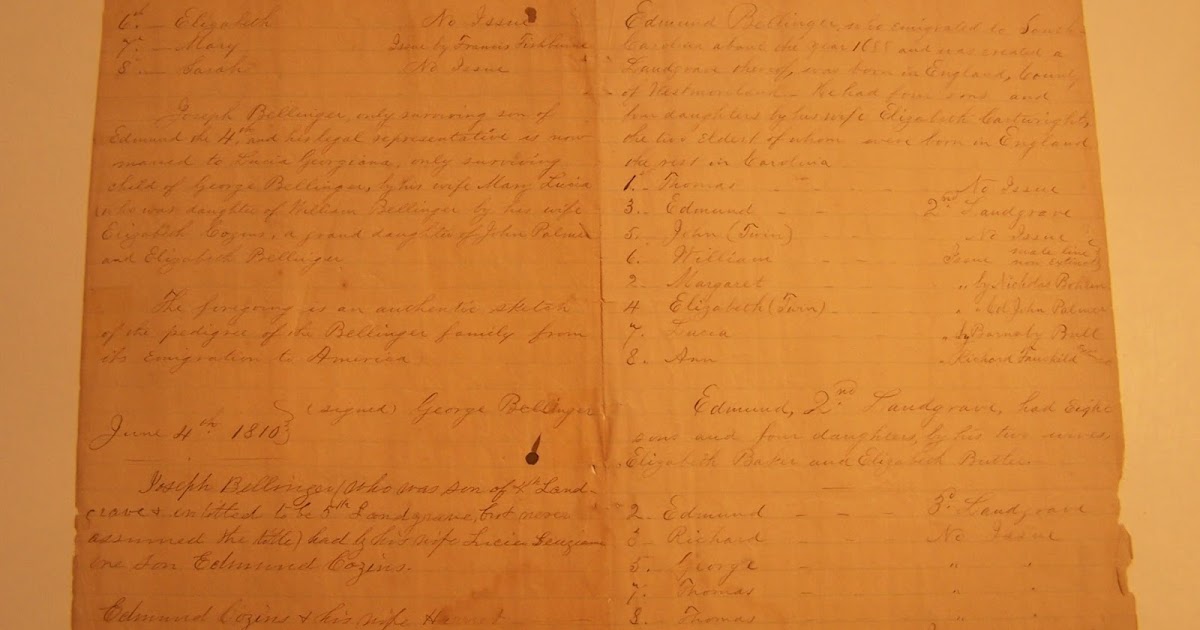 6th — Elizabeth No Issue
7th — Mary Issue by Francis Fishburne
8 — Sarah No Issue
Joseph Bellinger, only surviving son of
Edmund the 4th and his legal representative is now
married to Lucia Georgiana, only surviving
child of George Bellinger, by his wife Mary Lucia
who was daughter of William Bellinger by his wife
Elizabeth Cozins, a grand daughter of John Palmer
and Elizabeth Bellinger
The foregoing is an authentic sketch
of the pedigree of the Bellinger family from
its Emigration to America
(signed) George Bellinger
June 4th 1810
Joseph Bellinger (who was son of 4th Land-
grave & intitled to be 5th Landgrave, but never
assumed the title) had by his wife Lucia
one son Edmund Cozins.
Edmund Cozins & his wife Harriet
Edmund Bellinger, who emigrated to South
Carolina about the year 1688 and was created a
Landgrave thereof, was born in England, County
of Westmoreland — He had four sons and
four daughters by his wife Elizabeth Cartwright,
the two eldest of whom were born in England
the rest in Carolina
1. Thomas No Issue
3. Edmund 2nd Landgrave
5. John (Twin) No Issue
6. William Issue male line non extinct
2. Margaret " by Nicholas Bohun
4 Elizabeth (Twin) " " Col John Palmer
7. Lucia " by Barnaby Bull
8. Ann " Richard
Edmund, 2nd Landgrave, had Eight
sons and four daughters, by his two wives,
Elizabeth Baker and Elizabeth Butler
2. Edmund 3d Landgrave
3. Richard No Issue
5. George " "
7. Thomas " "
8. Thomas " "